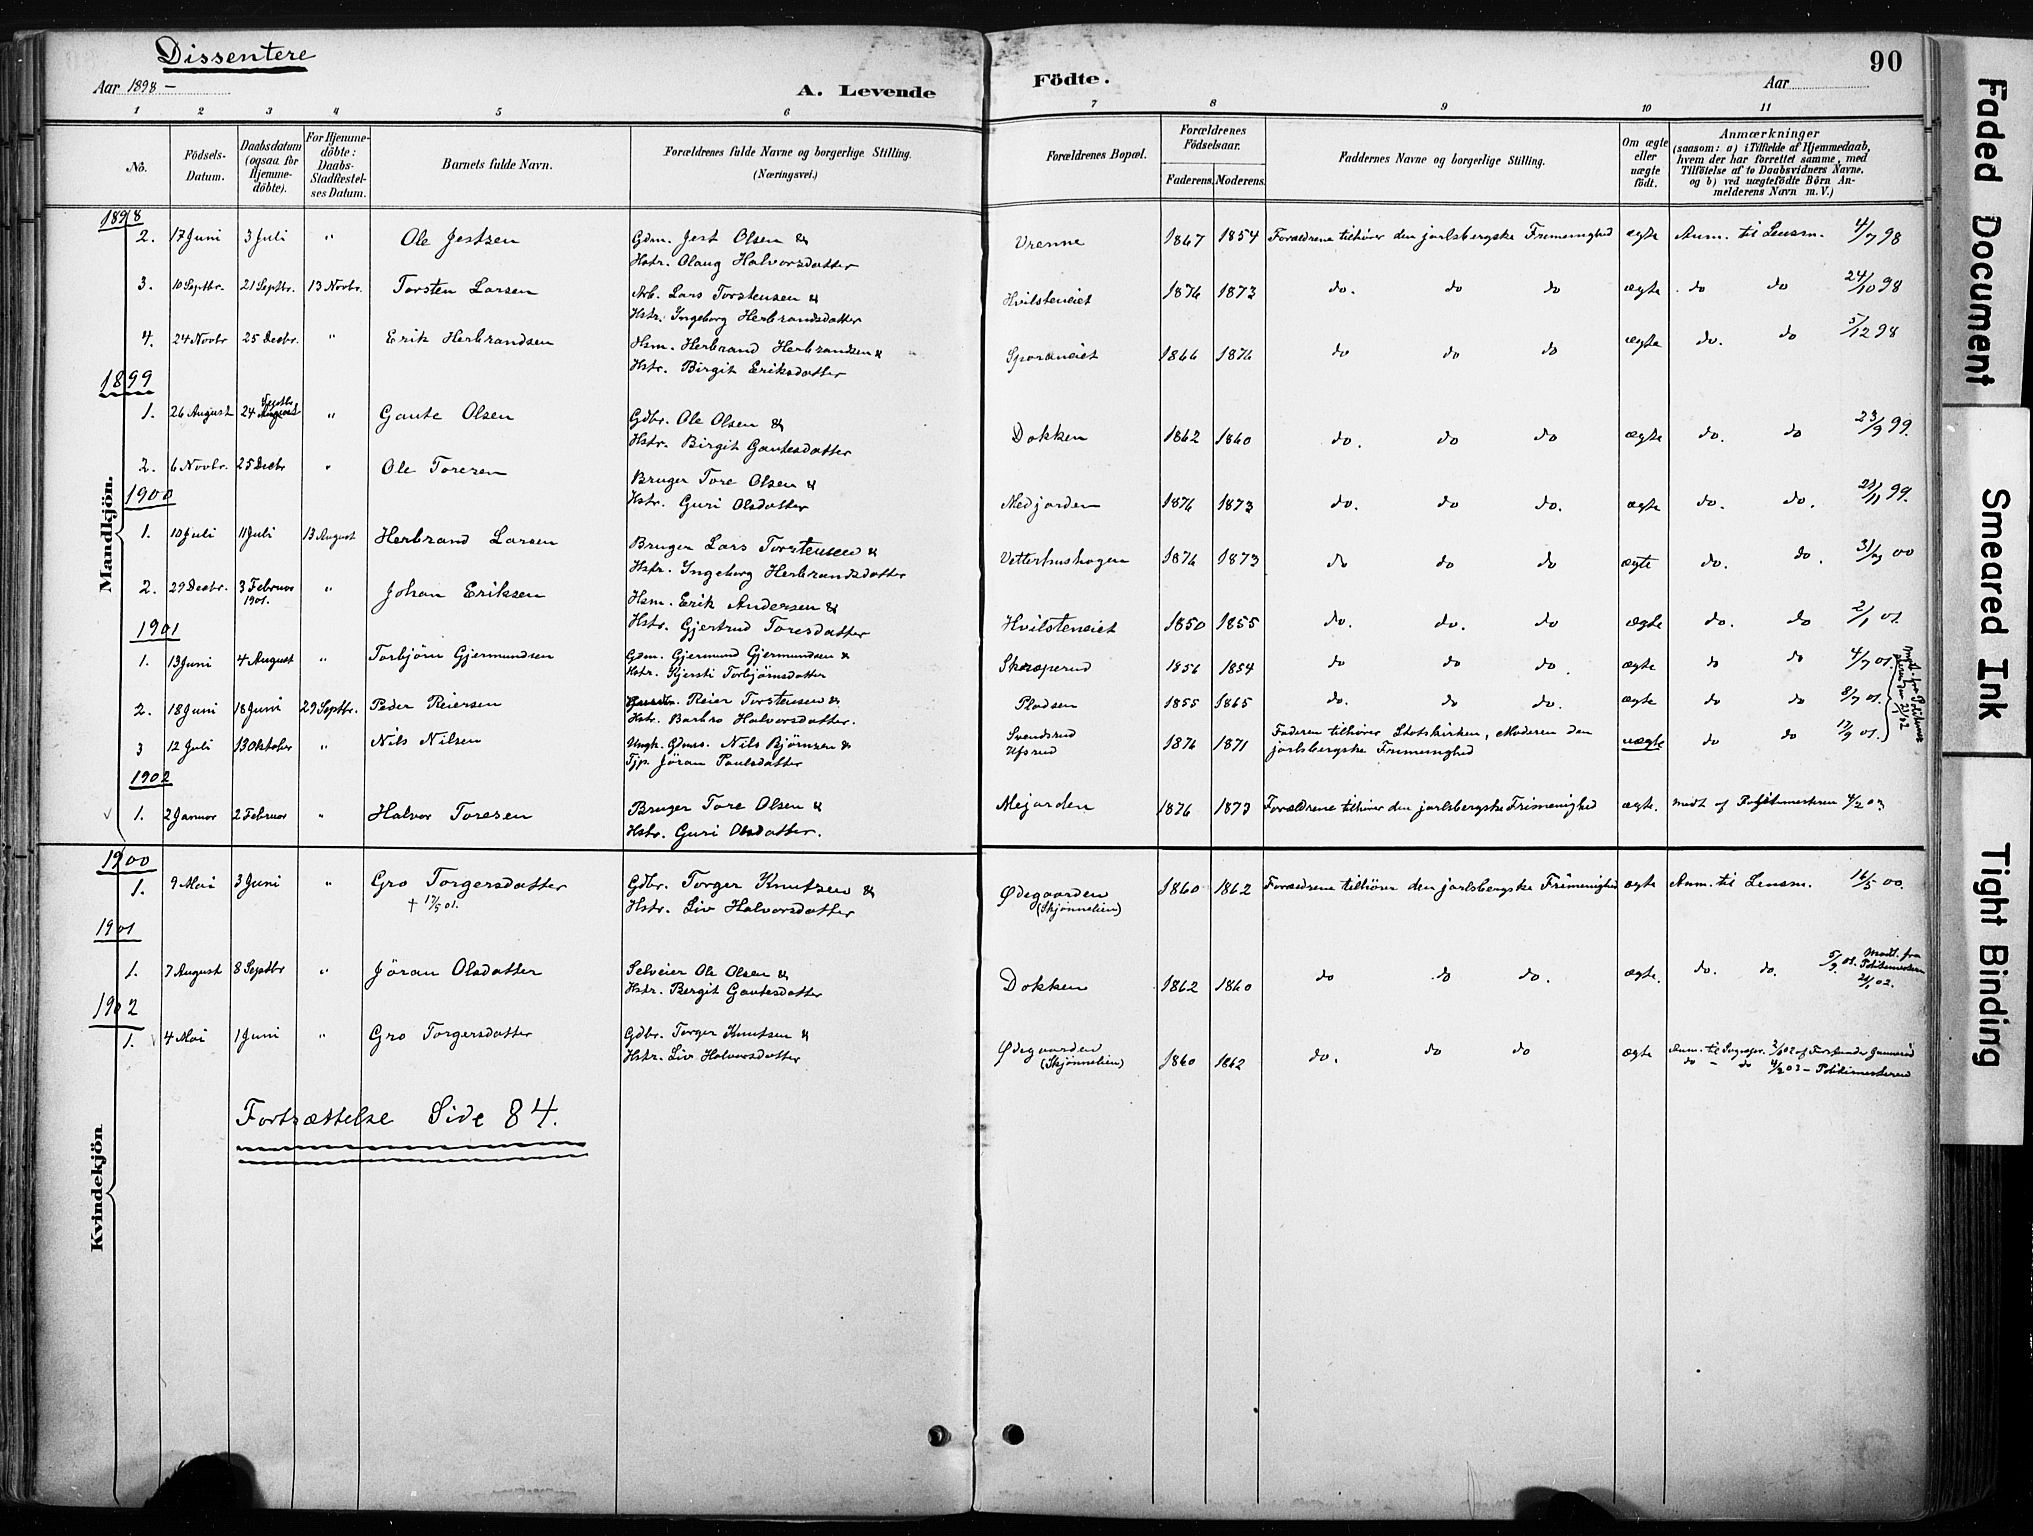 Dissentere
Aar 1898 –
A. Levende
Födte.
Aar
90
1 2 3 4 5 6 7 8 9 10 11
No.
Födsels-Datum.
Daabsdatum (ogsaa for Hjemme-döbte).
For Hjemme-döbte: Daabs-Stadfæstel-ses Datum.
Barnets fulde Navn.
Forældrenes fulde Navne og borgerlige Stilling. (Næringsvei.)
Forældrenes Bopæl.
Forældrenes Födselsaar.
Faderens. Moderens.
Faddernes Navne og borgerlige Stilling.
Om ægte eller uægte födt.
Anmærkninger (saasom: a) i Tilfælde af Hjemmedaab, hvem der har forrettet samme, med Tilföielse af to Daabsvidners Navne, og b) ved uægtefödte Börn An-melderens Navn m. V.)
Mandkjön.
1898
2. 17 Juni 3 Juli " Ole Jestsen Gdm. Jest Olsen & Vrenne 1867 1854 Forældrene tilhører den jarlsbergske Frimenighed ægte Anm. til Lensm. 4/7 98
Hstr. Olaug Halvorsdatter
3. 10 Septbr. 21 Septbr. 13 Novbr. Torsten Larsen Arb. Lars Torstensen & Hvilsteneiet 1876 1873 do. do do ægte do do 24/10 98
Hstr. Ingeborg Herbrandsdatter
4. 24 Novbr 25 Decbr. " Erik Herbrandsen Hsm. Herbrand Herbrandsen & Sporaneiet 1866 1876 do do do ægte do. do 5/12 98
Hstr. Birgit Eriksdatter
1899
1. 26 August 24 Septbr " Gaute Olsen Gdbr. Ole Olsen & Dokken 1862 1860 do. do do ægte do. do 23/9 99.
Hstr. Birgit Gautesdatter
2. 6 Novbr. 25 Decbr " Ole Toresen Bruger Tore Olsen & Medjorden 1876 1873 do. do do. ægte do. do. 21/11 99.
Hstr. Guri Olsdatter
1900
1. 10 Juli 11 Juli 13 August Herbrand Larsen Bruger Lars Torstensen & Vetterhushagen 1876 1873 do do do ægte do. do. 31/7 00
Hstr. Ingeborg Herbrandsdatter
2. 29 Decbr. 3 Februar 1901. " Johan Eriksen Hsm. Erik Andersen & Hvilsteneiet 1850 1855 do. do. do ægte do. do 2/1 01.
Hstr. Gjertrud Toresdatter
1901
1. 13 Juni 4 August " Torbjörn Gjermundsen Gdm. Gjermund Gjermundsen & Skaraperud 1856 1854 do do do. ægte do do 4/7 01.
Hstr. Kjersti Torbjörnsdatter
2. 18 Juni 18 Juni 29 Septbr. Peder Reiersen Reier Torstensen & Pladsen 1855 1865 do. do do. ægte do do 8/7 01.
Hstr. Barbro Halvorsdatter.
3 12 Juli 13 Oktober " Nils Nilsen Ungk. Gdms. Nils Björnsen & Svendsrud 1876 1871 Faderen tilhører Statskirken, Moderen den uægte do do 17/9 01.
Tjp. Jöran Paulsdatter Ufsrud jarlsbergske Frimenighed
1902
1. 2 Januar 2 Februar " Halvor Toresen Bruger Tore Olsen & Mejorden 1876 1873 Forældrene tilhører den jarlsbergske Frimenighed ægte. modt af Politimesteren 4/2 03
Hstr. Guri Olsdatter.
Kvindekjön
1900
1. 9 Mai 3 Juni " Gro Torgersdatter Gdbr. Torger Knutsen & Ødegaarden 1860 1862 Forældrene tilhører den jarlsbergske Frimenighed ægte Anm. til Lensm. 16/5 00.
† 17/5 01. Hstr. Liv Halvorsdatter (Skjønnelien)
1901
1. 7 August 8 Septbr " Jöran Olsdatter Selveier Ole Olsen & Dokken 1862 1860 do do do. ægte. do. do. 5/9 01. Modt. fra Politimesteren 2/1 02.
Hstr. Bergit Gautesdatter
1902
1. 4 Mai 1 Juni " Gro Torgersdatter Gdbr. Torger Knutsen & Ødegaarden 1860 1862 do. do do ægte Anm. til Sognepr. af Forstander
Hstr. Liv Halvorsdatter (Skjønnelien) do – do 4/2 03 – Politimesteren
Fortsættelse Side 84.
Faded Document
Smeared Ink
Tight Binding